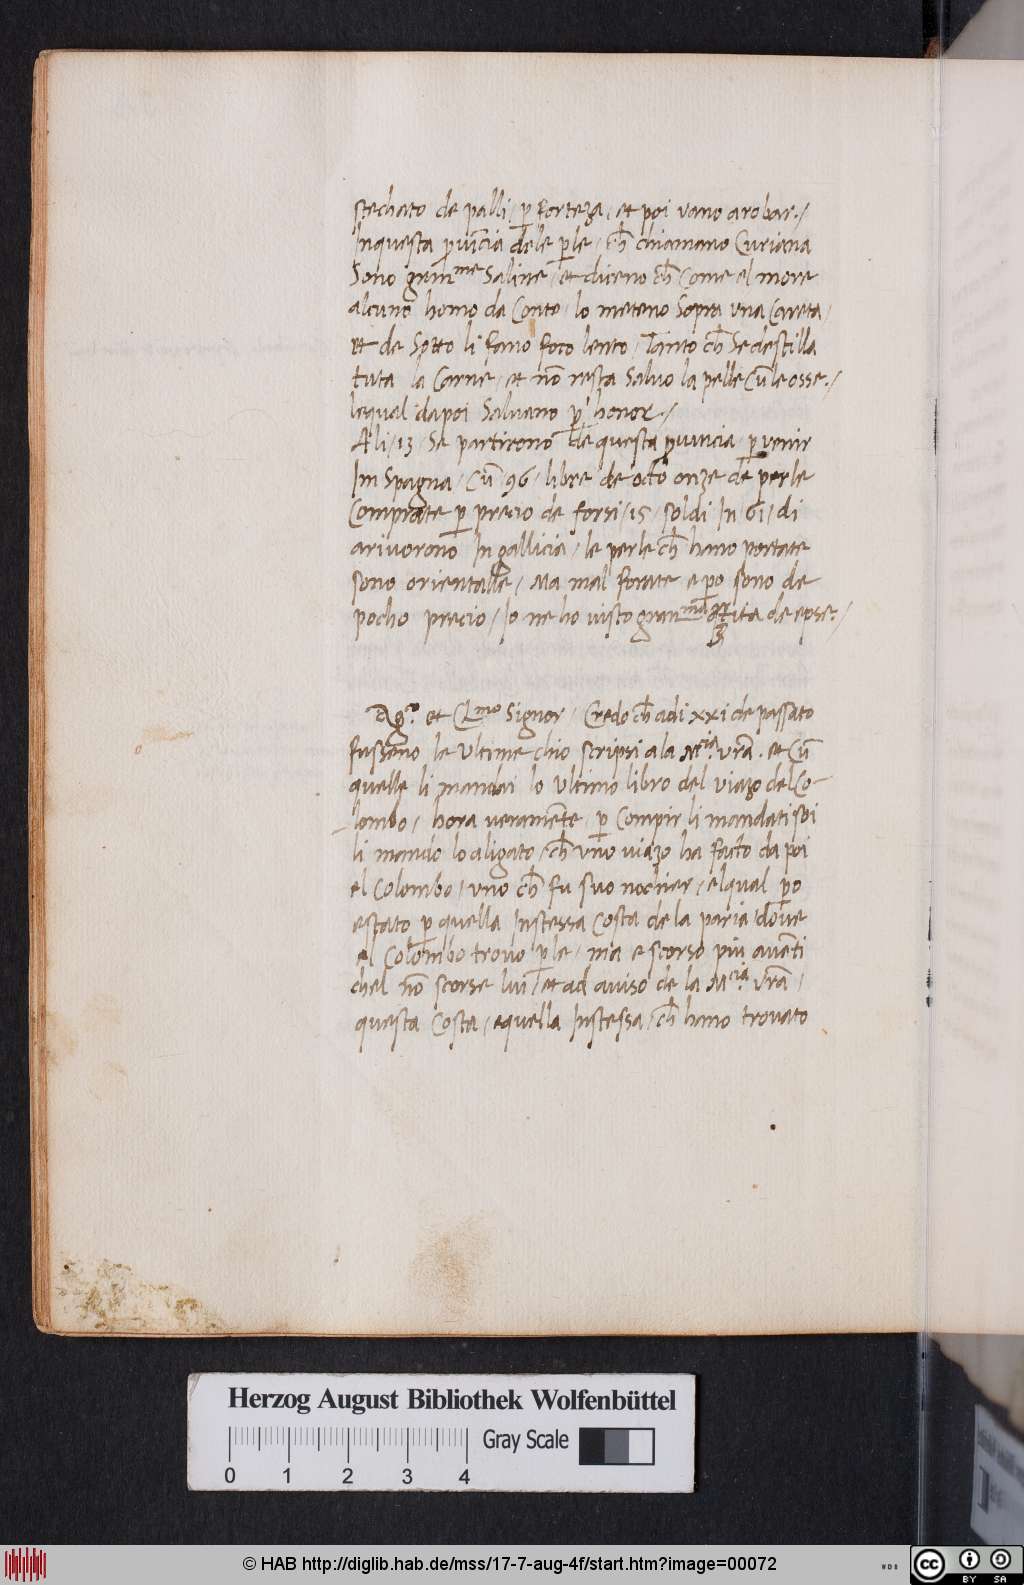 stechato de palli / p̱ forteza / et poi vano arobar·/
Inquesta p̱uincia dele p̱le / ch̄ chiamano Curiana
Sono gran̄me Saline / et diceno ch̄ Come el more
alcuno homo da Conto / lo meteno Sopra vna Careta /
et de Sotto li fano foco lento / Tanto ch̄ Sedestilla
tuta la Carne / et nō resta Saluo la pelle Cū le osse·/
lequal dapoi Saluano p̱ honor·/
Ali / 13 / Se partirono de questa p̱uincia / p̱ venir
In Spagna / Cū / 96 / libre de octo onze de perle
Comprate p̱ precio de forsi / 15 / soldi In 61 / di
ariuorono In gallicia / le perle ch̄ hano portate
sono orientalle / Ma mal forate e p̱o sono de
pocho precio / Io ne ho visto gran p̱tita de epse·/
et Cl.mo Signor / Credo ch̄ adi xxi de passato
fusseno le vltime chio scripsi ala M.cia vrā. et Cū
quelle li mandai lo vltimo libro del viazo del Co-
lombo / hora veramēte / p̱ Compir li mandati soi
li mando lo aligato / ch̄ vno viazo ha facto da poi
el Colombo / vno ch̄ fu suo nochier / elqual p̱o
estato p̱ quella Instessa Costa de la paria doue
el Colombo trouo p̱le / ma e scorso piu auāti
chel nō scorse lui / et ad auiso de la M.cia vrā /
questa Costa / equella Instessa / ch̄ hano trouato
Herzog August Bibliothek Wolfenbüttel
Gray Scale
0 1 2 3 4
© HAB http://diglib.hab.de/mss/17-7-aug-4f/start.htm?image=00072
WDB
cc BY SA